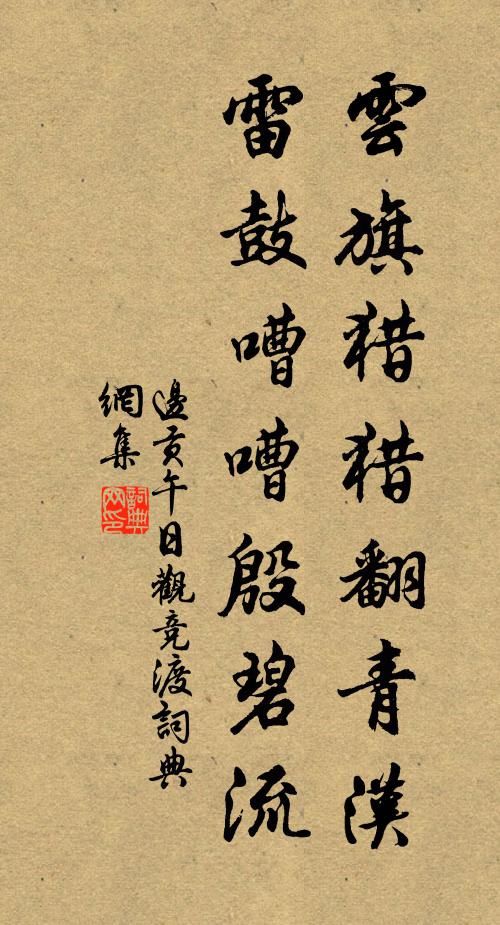 雲旗猎猎翻青漢
雷鼓嘈嘈殷碧流
邊貢午日觀竞渡詞典
網集
詞典网印